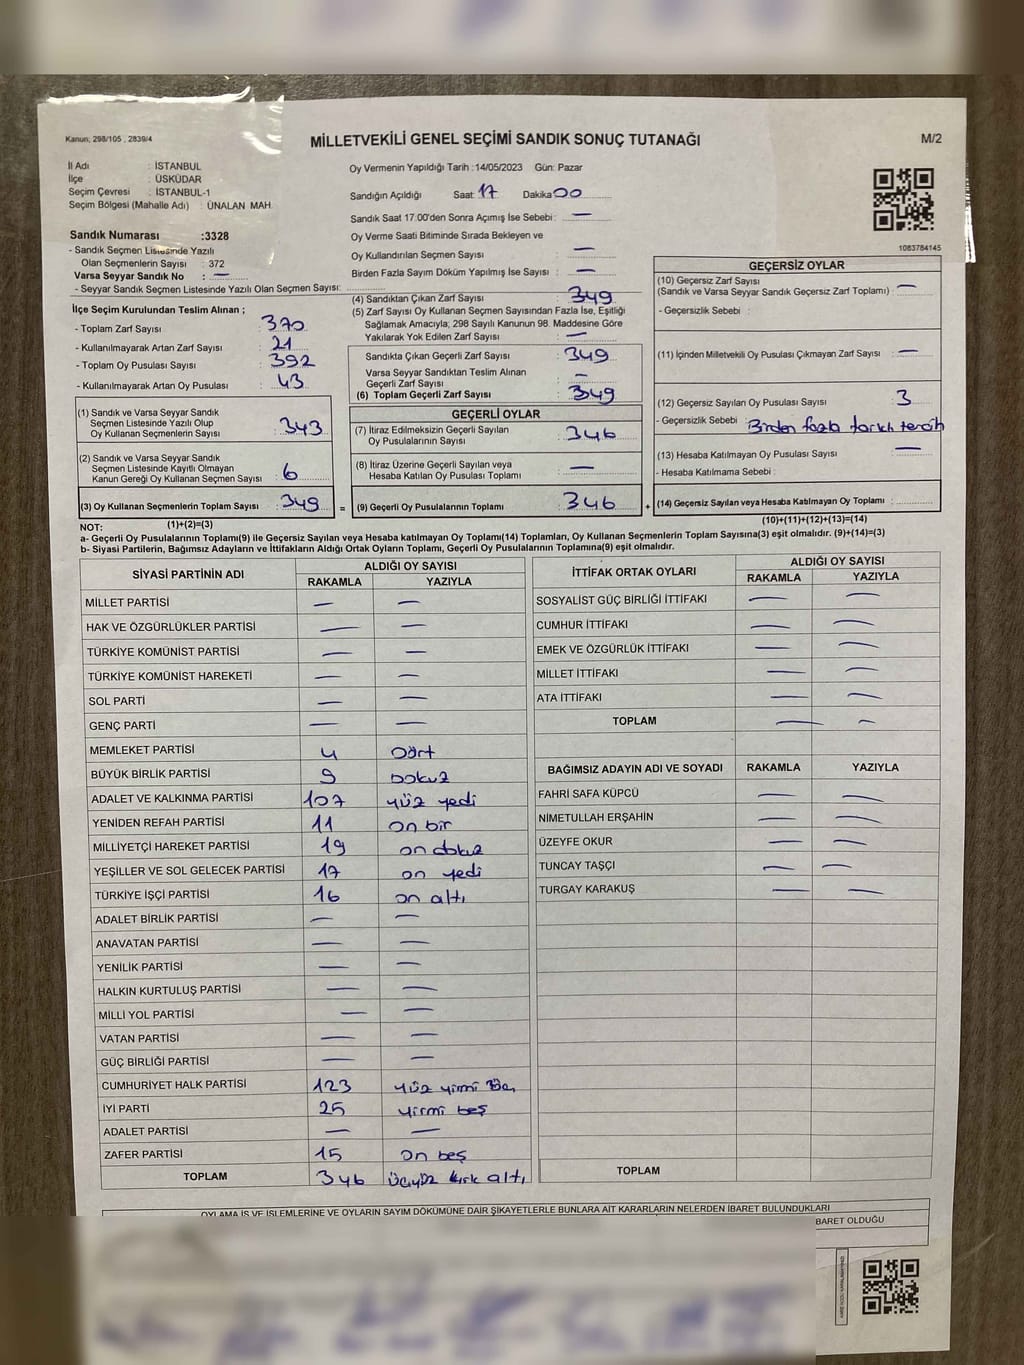 Kanun: 298/105 , 2839/4
MİLLETVEKİLİ GENEL SEÇİMİ SANDIK SONUÇ TUTANAĞI
M/2
İl Adı : İSTANBUL
İlçe : ÜSKÜDAR
Seçim Çevresi : İSTANBUL-1
Seçim Bölgesi (Mahalle Adı) : ÜNALAN MAH.
Oy Vermenin Yapıldığı Tarih :14/05/2023 Gün: Pazar
Sandığın Açıldığı Saat: 17 Dakika: 00
Sandık Saat 17:00'den Sonra Açımış İse Sebebi : —
Oy Verme Saati Bitiminde Sırada Bekleyen ve
Oy Kullandırılan Seçmen Sayısı : —
Birden Fazla Sayım Döküm Yapılmış İse Sayısı : —
1083784145
Sandık Numarası :3328
- Sandık Seçmen Listesinde Yazılı
Olan Seçmenlerin Sayısı : 372
Varsa Seyyar Sandık No : —
- Seyyar Sandık Seçmen Listesinde Yazılı Olan Seçmen Sayısı:
İlçe Seçim Kurulundan Teslim Alınan ;
- Toplam Zarf Sayısı : 370
- Kullanılmayarak Artan Zarf Sayısı : 21
- Toplam Oy Pusulası Sayısı : 392
- Kullanılmayarak Artan Oy Pusulası : 43
(1) Sandık ve Varsa Seyyar Sandık
Seçmen Listesinde Yazılı Olup
Oy Kullanan Seçmenlerin Sayısı : 343
(2) Sandık ve Varsa Seyyar Sandık
Seçmen Listesinde Kayıtlı Olmayan
Kanun Gereği Oy Kullanan Seçmen Sayısı : 6
(3) Oy Kullanan Seçmenlerin Toplam Sayısı : 349
(4) Sandıktan Çıkan Zarf Sayısı : 349
(5) Zarf Sayısı Oy Kullanan Seçmen Sayısından Fazla İse, Eşitliği
Sağlamak Amacıyla; 298 Sayılı Kanunun 98. Maddesine Göre
Yakılarak Yok Edilen Zarf Sayısı : —
Sandıkta Çıkan Geçerli Zarf Sayısı : 349
Varsa Seyyar Sandıktan Teslim Alınan
Geçerli Zarf Sayısı : —
(6) Toplam Geçerli Zarf Sayısı : 349
GEÇERLİ OYLAR
(7) İtiraz Edilmeksizin Geçerli Sayılan
Oy Pusulalarının Sayısı : 346
(8) İtiraz Üzerine Geçerli Sayılan veya
Hesaba Katılan Oy Pusulası Toplamı : —
= (9) Geçerli Oy Pusulalarının Toplamı : 346 +
GEÇERSİZ OYLAR
(10) Geçersiz Zarf Sayısı
(Sandık ve Varsa Seyyar Sandık Geçersiz Zarf Toplamı) : —
- Geçersizlik Sebebi :
(11) İçinden Milletvekili Oy Pusulası Çıkmayan Zarf Sayısı : —
(12) Geçersiz Sayılan Oy Pusulası Sayısı : 3
- Geçersizlik Sebebi : Birden fazla farklı tercih
(13) Hesaba Katılmayan Oy Pusulası Sayısı : —
- Hesaba Katılmama Sebebi :
(14) Geçersiz Sayılan veya Hesaba Katılmayan Oy Toplamı :
NOT: (1)+(2)=(3) (10)+(11)+(12)+(13)=(14)
a- Geçerli Oy Pusulalarının Toplamı(9) ile Geçersiz Sayılan veya Hesaba katılmayan Oy Toplamı(14) Toplamları, Oy Kullanan Seçmenlerin Toplam Sayısına(3) eşit olmalıdır. (9)+(14)=(3)
b- Siyasi Partilerin, Bağımsız Adayların ve İttifakların Aldığı Ortak Oyların Toplamı, Geçerli Oy Pusulalarının Toplamına(9) eşit olmalıdır.
SİYASİ PARTİNİN ADI ALDIĞI OY SAYISI
RAKAMLA YAZIYLA
MİLLET PARTİSİ — —
HAK VE ÖZGÜRLÜKLER PARTİSİ — —
TÜRKİYE KOMÜNİST PARTİSİ — —
TÜRKİYE KOMÜNİST HAREKETİ — —
SOL PARTİ — —
GENÇ PARTİ — —
MEMLEKET PARTİSİ 4 Dört
BÜYÜK BİRLİK PARTİSİ 9 Dokuz
ADALET VE KALKINMA PARTİSİ 107 yüz yedi
YENİDEN REFAH PARTİSİ 11 on bir
MİLLİYETÇİ HAREKET PARTİSİ 19 on dokuz
YEŞİLLER VE SOL GELECEK PARTİSİ 17 on yedi
TÜRKİYE İŞÇİ PARTİSİ 16 on altı
ADALET BİRLİK PARTİSİ — —
ANAVATAN PARTİSİ — —
YENİLİK PARTİSİ — —
HALKIN KURTULUŞ PARTİSİ — —
MİLLİ YOL PARTİSİ — —
VATAN PARTİSİ — —
GÜÇ BİRLİĞİ PARTİSİ — —
CUMHURİYET HALK PARTİSİ 123 yüz yirmi üç
İYİ PARTİ 25 yirmi beş
ADALET PARTİSİ — —
ZAFER PARTİSİ 15 on beş
TOPLAM 346 üçyüz kırk altı
İTTİFAK ORTAK OYLARI ALDIĞI OY SAYISI
RAKAMLA YAZIYLA
SOSYALİST GÜÇ BİRLİĞİ İTTİFAKI — —
CUMHUR İTTİFAKI — —
EMEK VE ÖZGÜRLÜK İTTİFAKI — —
MİLLET İTTİFAKI — —
ATA İTTİFAKI — —
TOPLAM — —
BAĞIMSIZ ADAYIN ADI VE SOYADI RAKAMLA YAZIYLA
FAHRİ SAFA KÜPCÜ — —
NİMETULLAH ERŞAHİN — —
ÜZEYFE OKUR — —
TUNCAY TAŞÇI — —
TURGAY KARAKUŞ — —
TOPLAM
OYLAMA İŞ VE İŞLEMLERİNE VE OYLARIN SAYIM DÖKÜMÜNE DAİR ŞİKAYETLERLE BUNLARA AİT KARARLARIN NELERDEN İBARET BULUNDUKLARI
BARET OLDUĞU